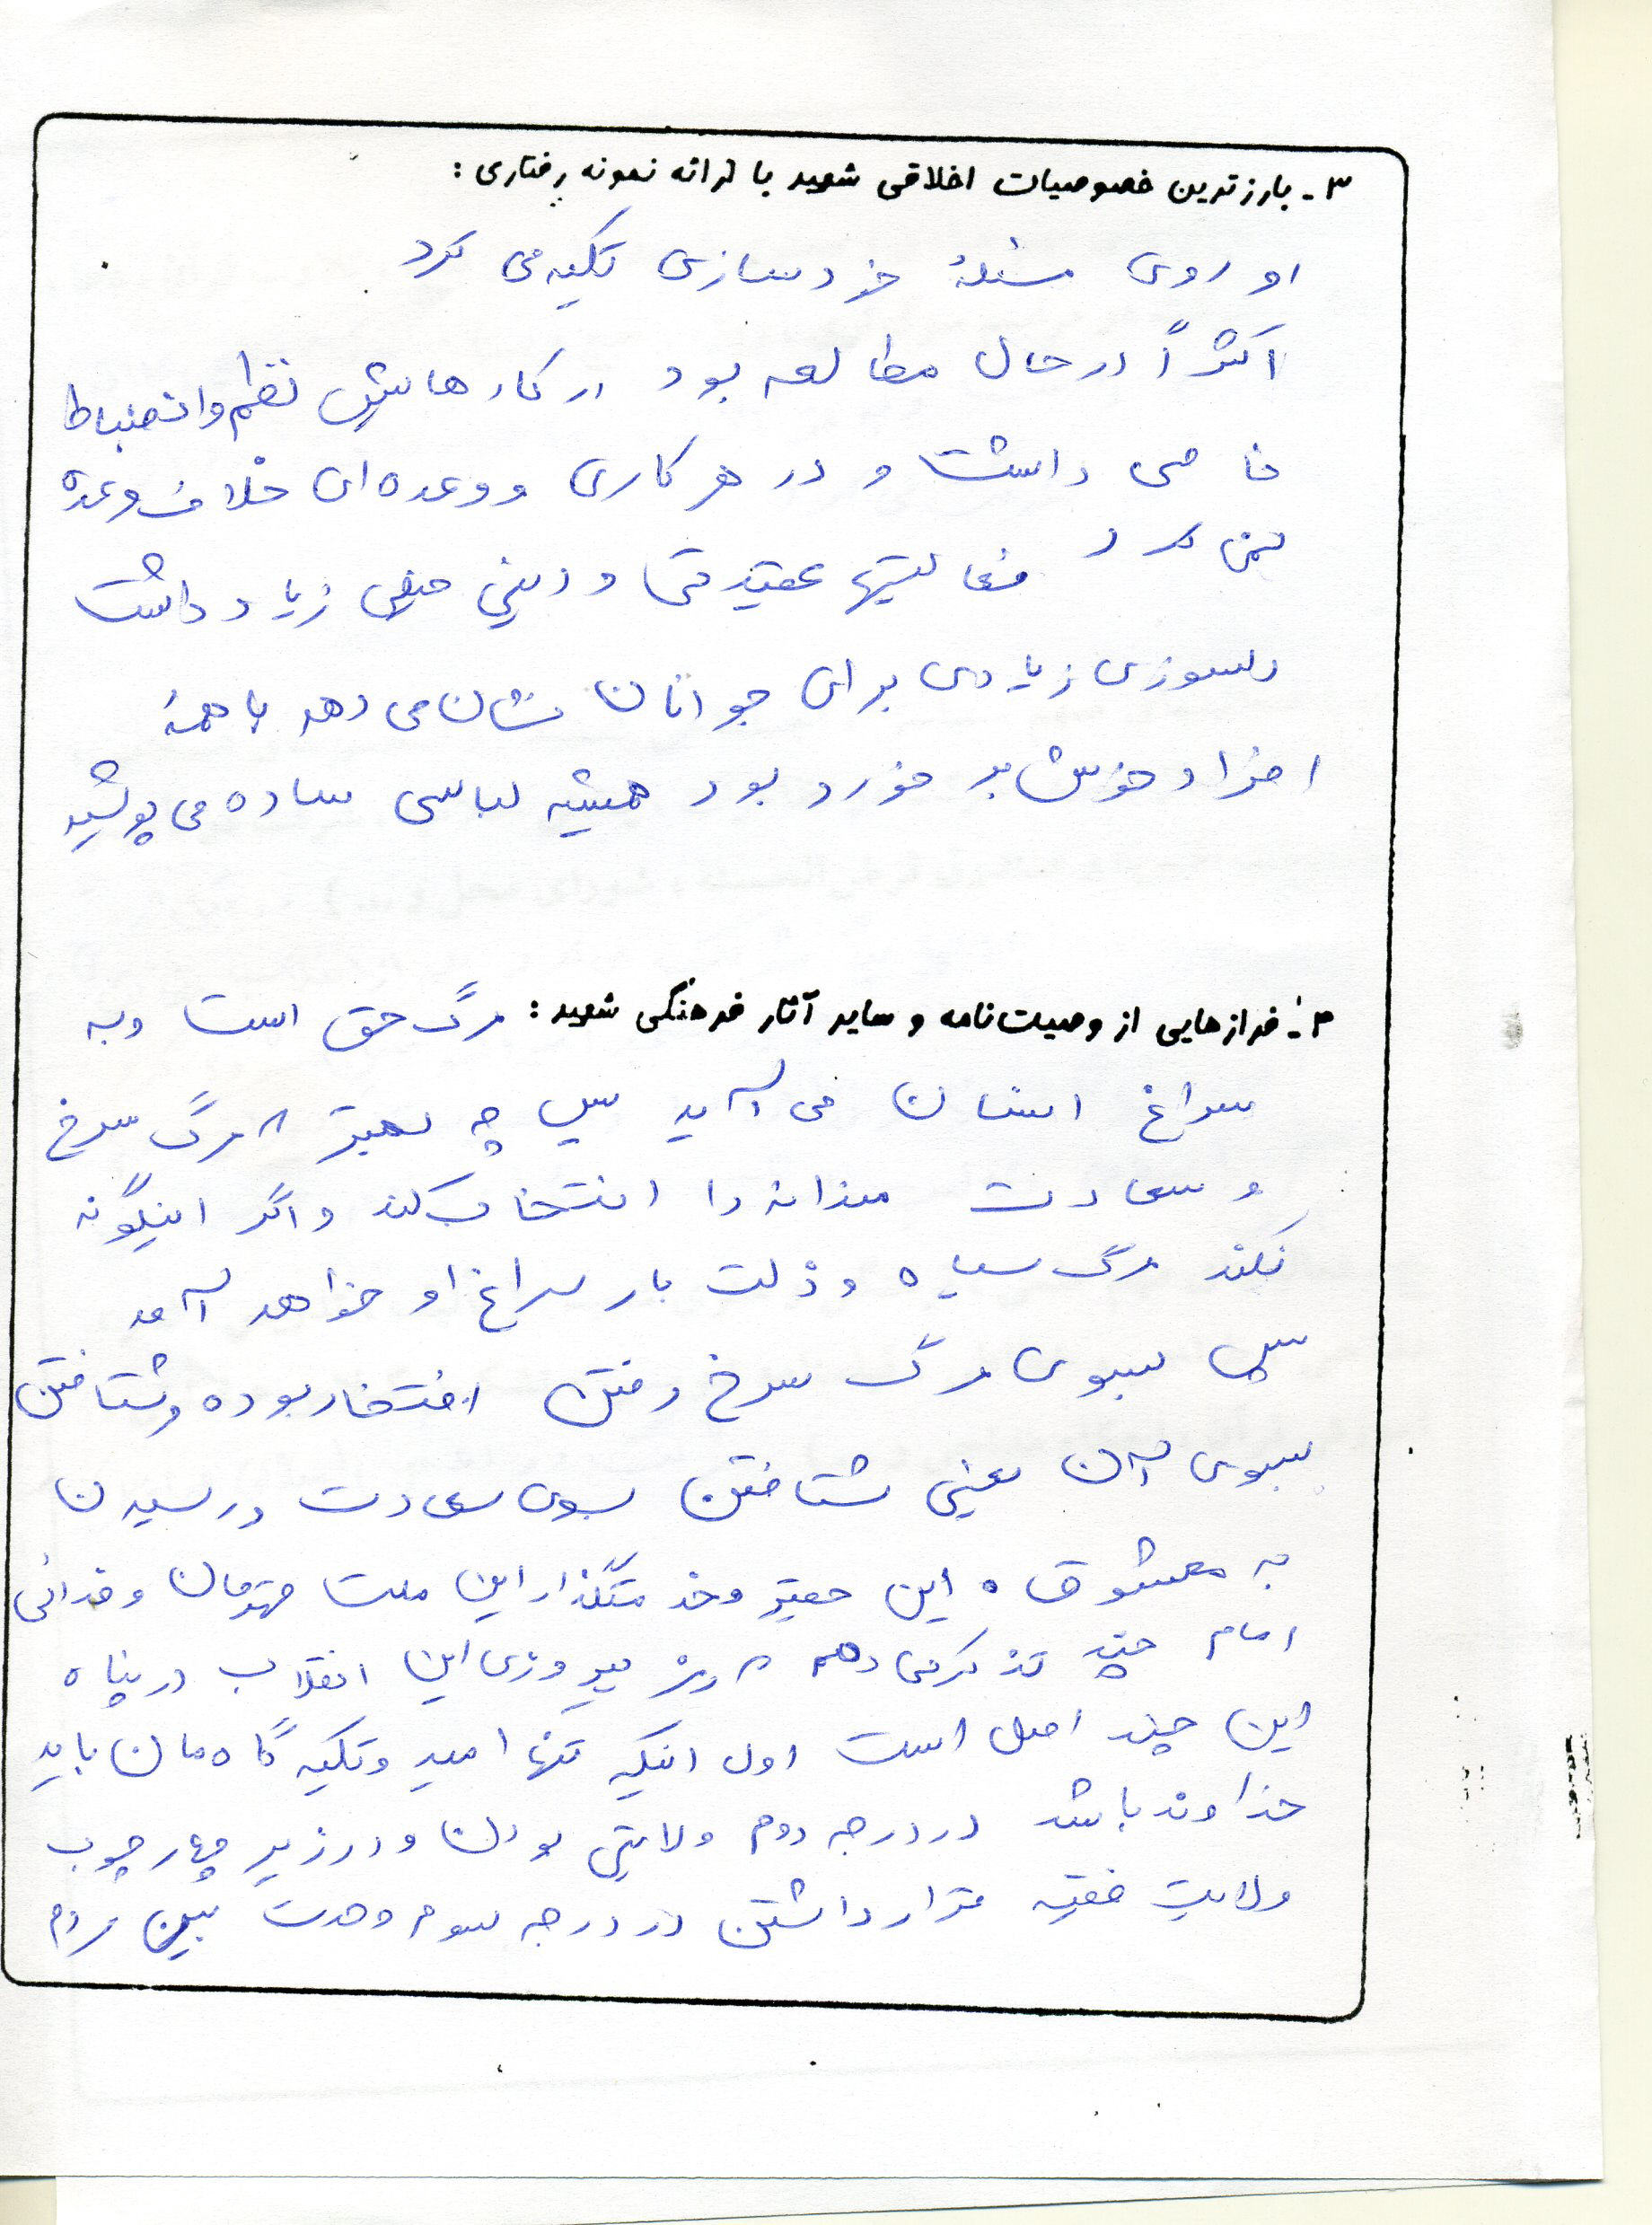 ۳ـ بارزترین خصوصیات اخلاقی شهید با ارائه نمونه رفتاری:
او روی مسئلهٔ خودسازی تکیه می کرد
اکثراً در حال مطالعه بود در کارهایش نظم و انضباط
خاصی داشت و در هر کاری و وعده‌ای خلاف وعده
نمی کرد فعالیتهای عقیدتی و دینی خیلی زیاد داشت
دلسوزی زیادی برای جوانان نشان می دهد با همهٔ
افراد خوش برخورد بود همیشه لباسی ساده می پوشید
۴ـ فرازهایی از وصیت‌نامه و سایر آثار فرهنگی شهید: مرگ حق است و به
سراغ انسان می آید پس چه بهتر مرگ سرخ
و سعادت مندانه را انتخاب کند و اگر اینگونه
نکند مرگ سیاه و ذلت بار سراغ او خواهد آمد
پس بسوی مرگ سرخ رفتن افتخار بوده و شتافتن
بسوی آن یعنی شتافتن بسوی سعادت و رسیدن
به معشوق این حقیر و خدمتگذار این ملت قهرمان و فدائی
امام چند تذکر می دهم رمز پیروزی این انقلاب در پناه
این چند اصل است اول اینکه تنها امید و تکیه گاه مان باید
خداوند باشد در درجه دوم ولایتی بودن و در زیر چهارچوب
ولایت فقیه قرار داشتن در درجه سوم وحدت بین مردم